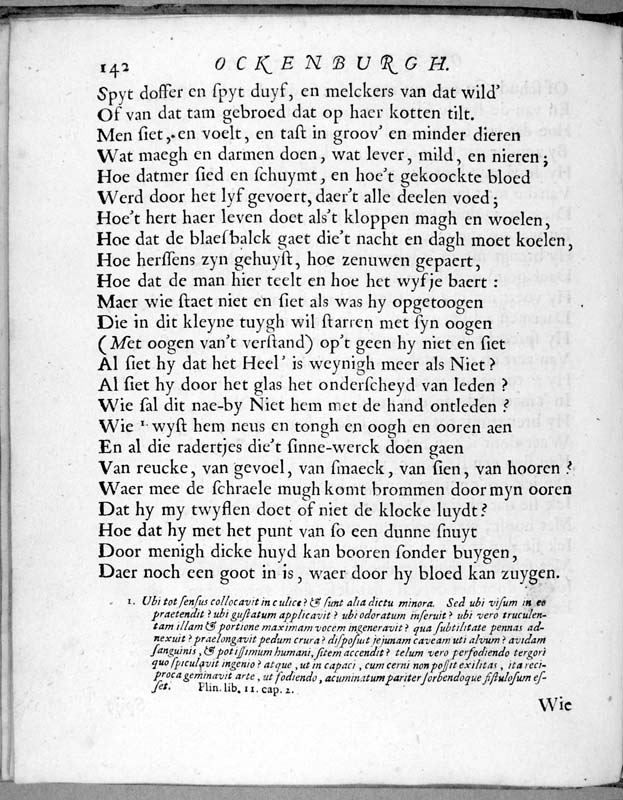 142 OCKENBURGH.
Spyt doffer en ſpyt duyf, en melckers van dat wild'
Of van dat tam gebroed dat op haer kotten tilt.
Men ſiet, en voelt, en taſt in groov' en minder dieren
Wat maegh en darmen doen, wat lever, mild, en nieren;
Hoe datmer ſied en ſchuymt, en hoe't gekoockte bloed
Werd door het lyf gevoert, daer't alle deelen voed;
Hoe't hert haer leven doet als't kloppen magh en woelen,
Hoe dat de blaesbalck gaet die't nacht en dagh moet koelen,
Hoe herſſens zyn gehuyſt, hoe zenuwen gepaert,
Hoe dat de man hier teelt en hoe het wyfje baert:
Maer wie ſtaet niet en ſiet als was hy opgetoogen
Die in dit kleyne tuygh wil ſtarren met ſyn oogen
(Met oogen van't verſtand) op't geen hy niet en ſiet
Al ſiet hy dat het Heel' is weynigh meer als Niet?
Al ſiet hy door het glas het onderſcheyd van leden?
Wie ſal dit nae-by Niet hem met de hand ontleden?
Wie 1. wyſt hem neus en tongh en oogh en ooren aen
En al die radertjes die't ſinne-werck doen gaen
Van reucke, van gevoel, van ſmaeck, van ſien, van hooren?
Waer mee de ſchraele mugh komt brommen door myn ooren
Dat hy my twyflen doet of niet de klocke luydt?
Hoe dat hy met het punt van ſo een dunne ſnuyt
Door menigh dicke huyd kan booren ſonder buygen,
Daer noch een goot in is, waer door hy bloed kan zuygen.
1. Ubi tot ſenſus collocavit in culice? & ſunt alia dictu minora. Sed ubi viſum in eo
praetendit? ubi guſtatum applicavit? ubi odoratum inſeruit? ubi vero truculen-
tam illam & portione maximam vocem ingeneravit? qua ſubtilitate pennas ad-
nexuit? praelongavit pedum crura? diſpoſuit jejunam caveam uti alvum? avidam
ſanguinis, & potiſſimum humani, ſitem accendit? telum vero perfodiendo tergori
quo ſpiculavit ingenio? atque, ut in capaci, cum cerni non poſſit exilitas, ita reci-
proca geminavit arte, ut fodiendo, acuminatum pariter ſorbendoque fiſtuloſum eſ-
ſet. Plin. lib. 11. cap. 2.
Wie